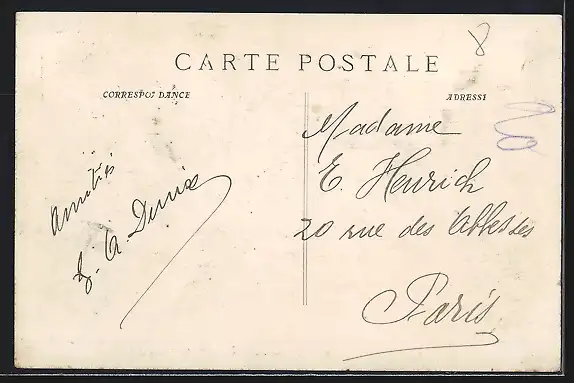 CARTE POSTALE
CORRESPONDANCE
ADRESSE
8
20
Amitiés
Madame
E. Henrich
20 rue des Abbesses
Paris